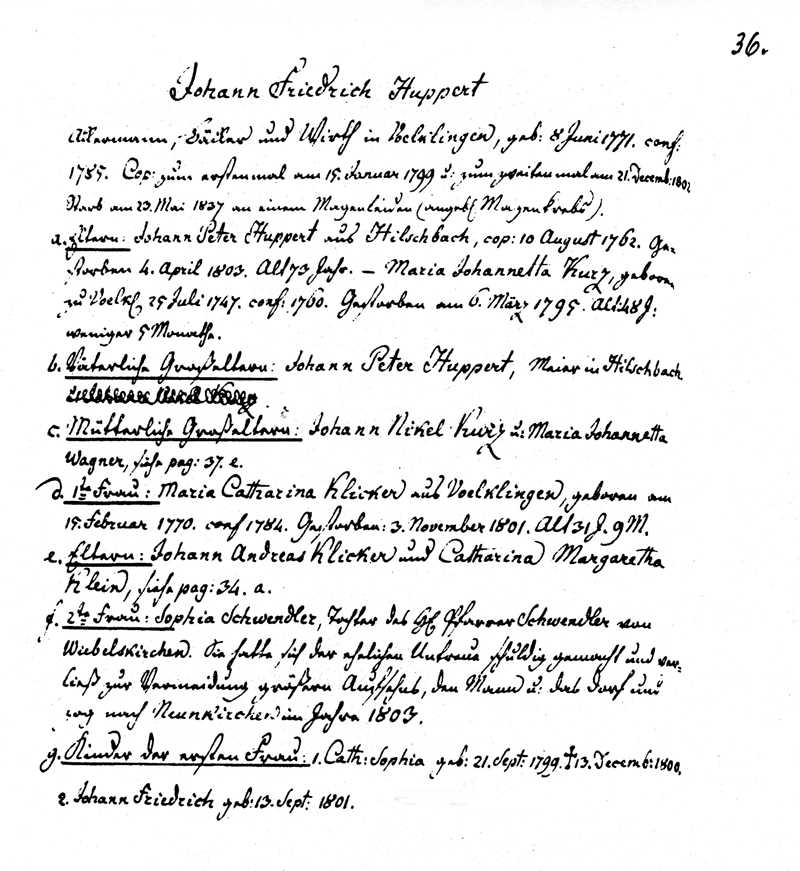 36.
Johann Friedrich Huppert
Ackermann, Bäcker und Wirth in Voelklingen, geb: 8 Juni 1771. conf:
1785. Cop: zum erstenmal am 15. Januar 1799 u: zum zweitenmal am 21. Decemb: 1802
Starb am 23. Mai 1837 an einem Magenleiden (angebl. Magenkrebs).
a. Eltern: Johann Peter Huppert aus Hilschbach, cop: 10 August 1762. Ge-
storben 4. April 1803. Alt 73 Jahr. – Maria Johannetta Kurz, geboren
zu Voelkl 25 Juli 1747. conf: 1760. Gestorben am 6. März 1795. Alt: 48 J:
weniger 5 Monathe.
b. Väterliche Großeltern: Johann Peter Huppert, Meier in Hilschbach
c. Mütterliche Großeltern: Johann Nikel Kurz u: Maria Johannetta
Wagner, siehe pag: 37. e.
d. 1te Frau: Maria Catharina Klicker aus Voelklingen, geboren am
15. Februar 1770. conf 1784. Gestorben: 3. November 1801. Alt 31 J. 9 M.
e. Eltern: Johann Andreas Klicker und Catharina Margaretha
Klein, siehe pag: 34. a.
f. 2te Frau: Sophia Schwendler, Tochter des H. Pfarrer Schwendler von
Wiebelskirchen. Sie hatte sich der ehelichen Untreue schuldig gemacht und ver-
ließ zur Vermeidung größern Aufsehns, den Mann u: das Dorf und
zog nach Neunkirchen im Jahre 1803.
g. Kinder der ersten Frau: 1. Cath: Sophia geb: 21. Sept: 1799. † 13. Decemb: 1800.
2. Johann Friedrich geb: 13. Sept: 1801.